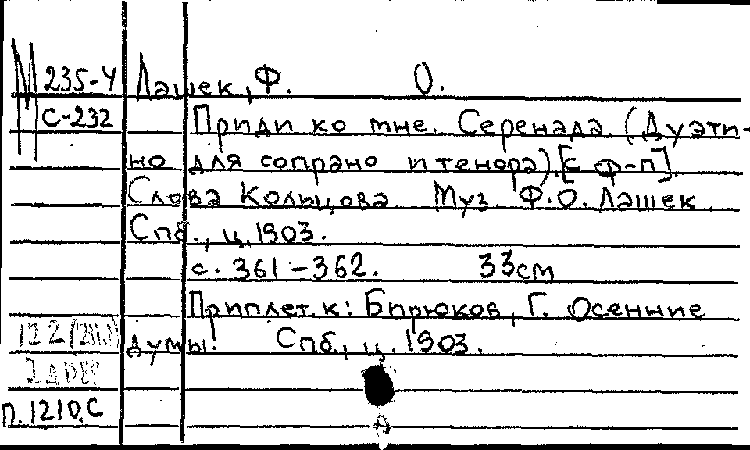 М 235-4 Лашек, Ф. О.
С-232 Приди ко мне. Серенада. (Дуэтти-
но для сопрано и тенора). [с ф-п].
Слова Кольцова. Муз. Ф.О. Лашек.
Спб., ц. 1903.
с. 361-362. 33см
Приплет. к: Бирюков, Г. Осенние
думы. Спб., ц. 1903.
п.1210.С